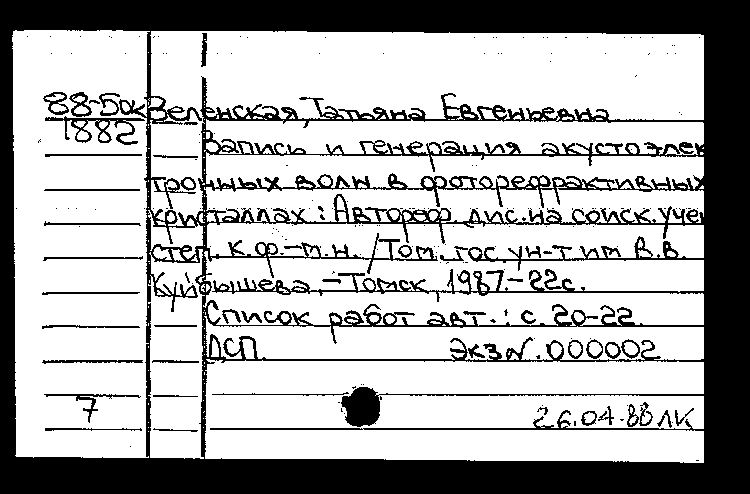 88-5ок Зеленская, Татьяна Евгеньевна
1882
Запись и генерация акустоэлек
тронных волн в фоторефрактивных
кристаллах : Автореф. дис. на соиск. учен
степ. к.ф.-м.н. / Том. гос. ун-т им В.В.
Куйбышева. - Томск, 1987. - 22с.
Список работ авт. : с. 20-22.
ДСП. Экз N. 000002
7 26.04.88 ЛК